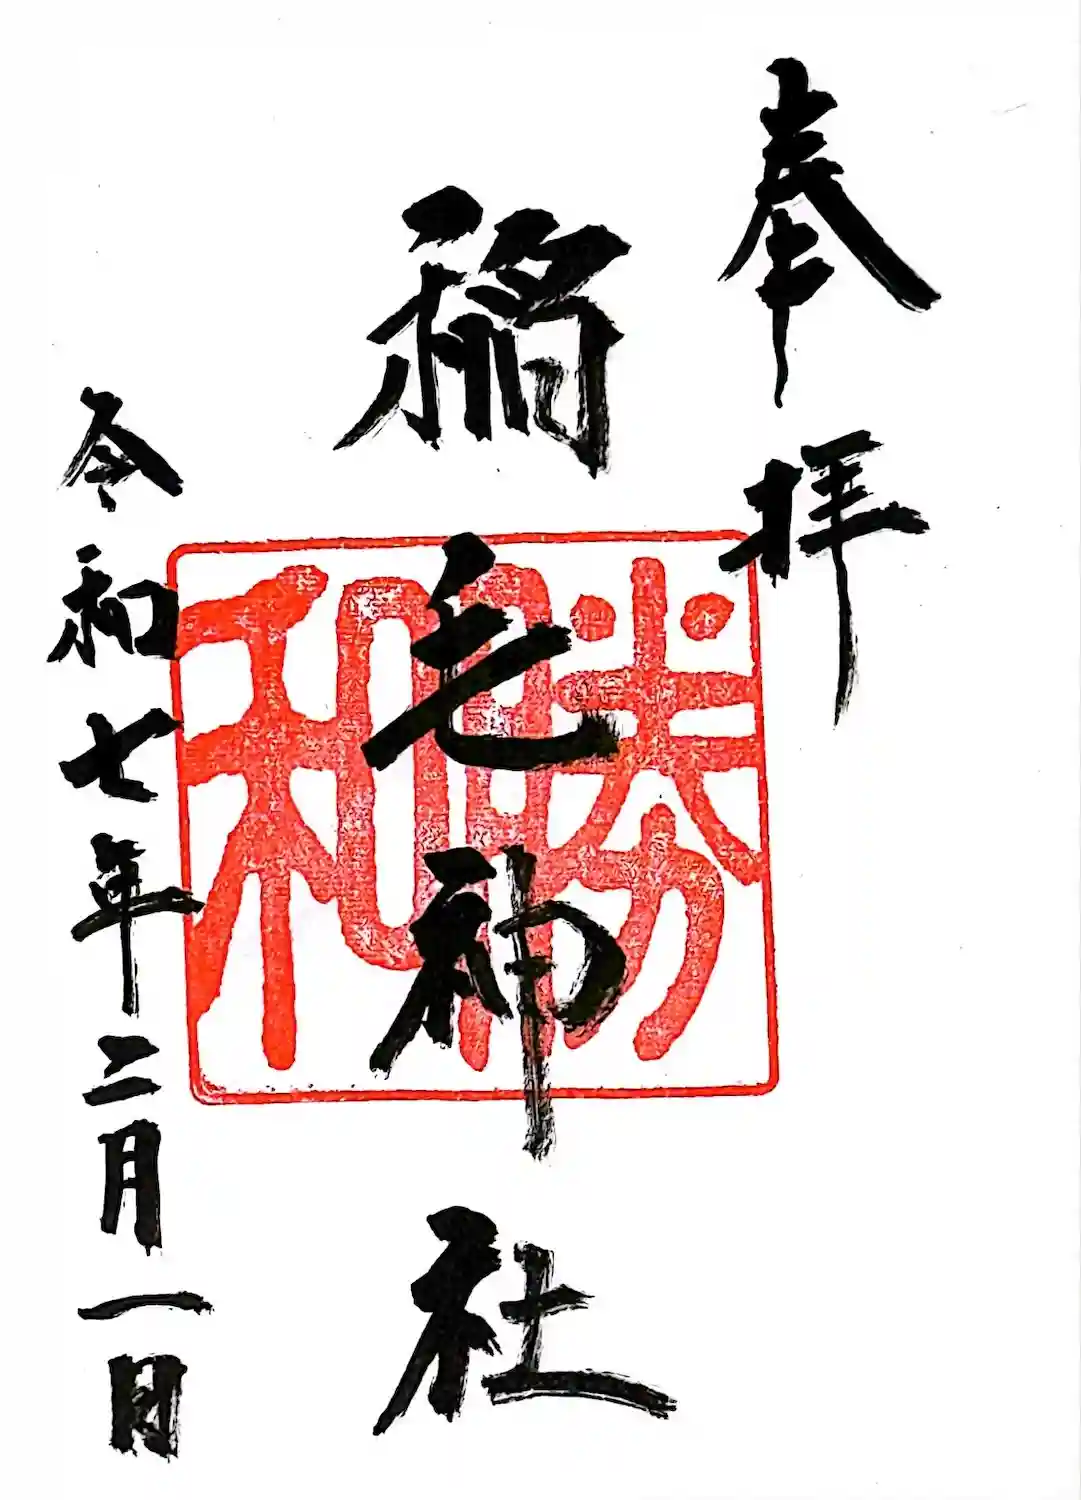 奉拝
稲毛神社
勝和
令和七年二月一日